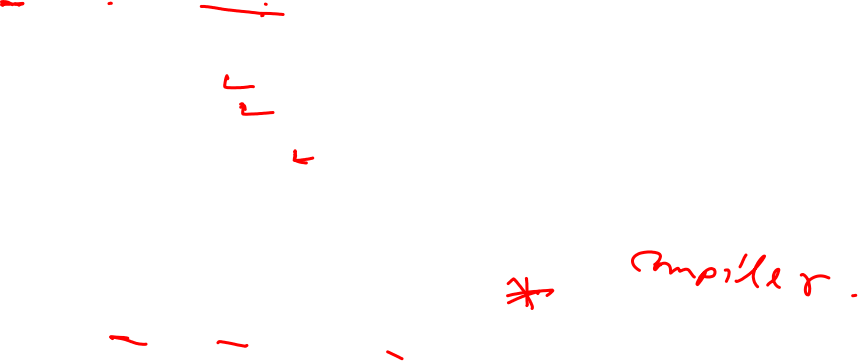 * Compiler.